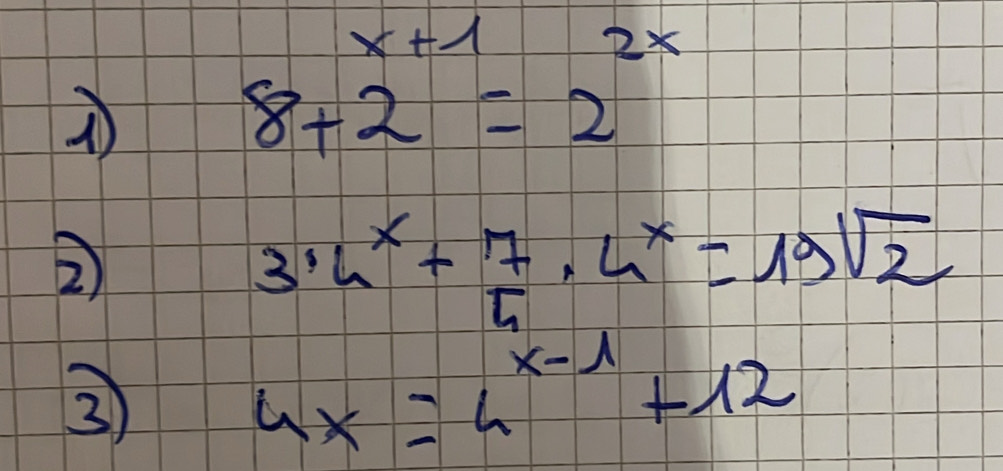 1) 8+2^(x+1) = 2^(2x)
2) 3·4^x + 7/4 · 4^x = 19√2
3) 4x = 4^(x-1) + 12